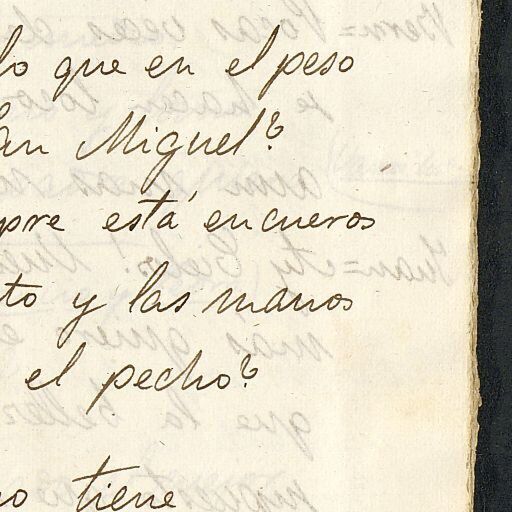 lo que en el peso
San Miguel?
mpre está en cueros
to y las manos
el pecho?
no tiene